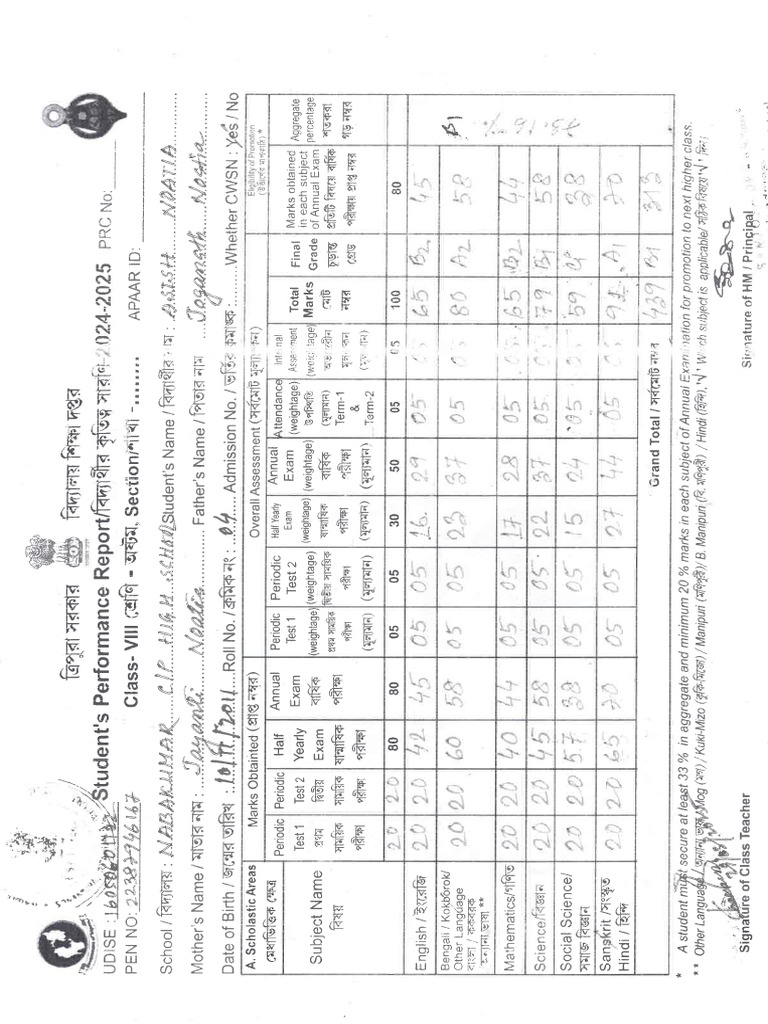 ত্রিপুরা সরকার বিদ্যালয় শিক্ষা দপ্তর
Student's Performance Report/বিদ্যার্থীর কৃতিত্ব সারণি-2024-2025 PRC No:
Class- VIII শ্রেণি - অষ্টম, Section/শাখা -........ APAAR ID:
UDISE :
PEN NO: 22287946167
School / বিদ্যালয় : NABAKUMAR C/P HIGH SCHOOL Student's Name / বিদ্যার্থীর নাম : NOATIA
Mother's Name / মাতার নাম : Jayanti Noatia Father's Name / পিতার নাম Joganath Noatia
Date of Birth / জন্মের তারিখ : Roll No. / ক্রমিক নং : 04 Admission No. / ভর্তির ক্রমাঙ্ক: Whether CWSN : Yes / No
A. Scholastic Areas Marks Obtainted (প্রাপ্ত নম্বর) Overall Assessment (সর্বমোট মূল্যায়ন) Eligibility of Promotion
Subject Name বিষয় Periodic Test 1 প্রথম সাময়িক পরীক্ষা Periodic Test 2 দ্বিতীয় সাময়িক পরীক্ষা Half Yearly Exam ষান্মাষিক পরীক্ষা Annual Exam বার্ষিক পরীক্ষা Periodic Test 1 (weightage) প্রথম সাময়িক পরীক্ষা (মূল্যমান) Periodic Test 2 (weightage) দ্বিতীয় সাময়িক পরীক্ষা (মূল্যমান) Half Yearly Exam (weightage) ষান্মাষিক পরীক্ষা (মূল্যমান) Annual Exam (weightage) বার্ষিক পরীক্ষা (মূল্যমান) Attendance (weightage) উপস্থিতি (মূল্যমান) Term-1 & Term-2 Internal Assessment (weightage) (মূল্যমান) Total Marks মোট নম্বর Final Grade চূড়ান্ত গ্রেড Marks obtained in each subject of Annual Exam প্রতিটি বিষয়ে বার্ষিক পরীক্ষায় প্রাপ্ত নম্বর Aggregate percentage শতকরা গড় নম্বর
20 20 80 80 05 05 30 50 05 05 100 80
English / ইংরেজি 20 20 42 45 05 05 16 29 05 05 65 B2 45
Bengali / Kokborok/ Other Language বাংলা / ককবরক অন্যান্য ভাষা ** 20 20 60 58 05 05 23 37 05 05 80 A2 58 B1
Mathematics/গণিত 20 20 40 44 05 05 17 28 05 05 65 B2 44
Science/বিজ্ঞান 20 20 45 58 05 05 22 37 05 05 79 B1 58
Social Science/ সমাজ বিজ্ঞান 20 20 57 38 05 05 15 24 05 05 59 38
Sangkrit /সংস্কৃত Hindi / হিন্দি 20 20 65 70 05 05 27 44 05 05 91 A1 70
Grand Total / সর্বমোট নম্বর 439 B1 313
* A student must secure at least 33 % in aggregate and minimum 20 % marks in each subject of Annual Examination for promotion to next higher class.
** Other Language/ অন্যান্য ভাষা/Mog (মগ) / Kuki-Mizo (কুকি-মিজো) / Manipuri (মণিপুরী)/ B. Manipuri (বি. মণিপুরী) / Hindi (হিন্দি),
Signature of Class Teacher Signature of HM / Principal